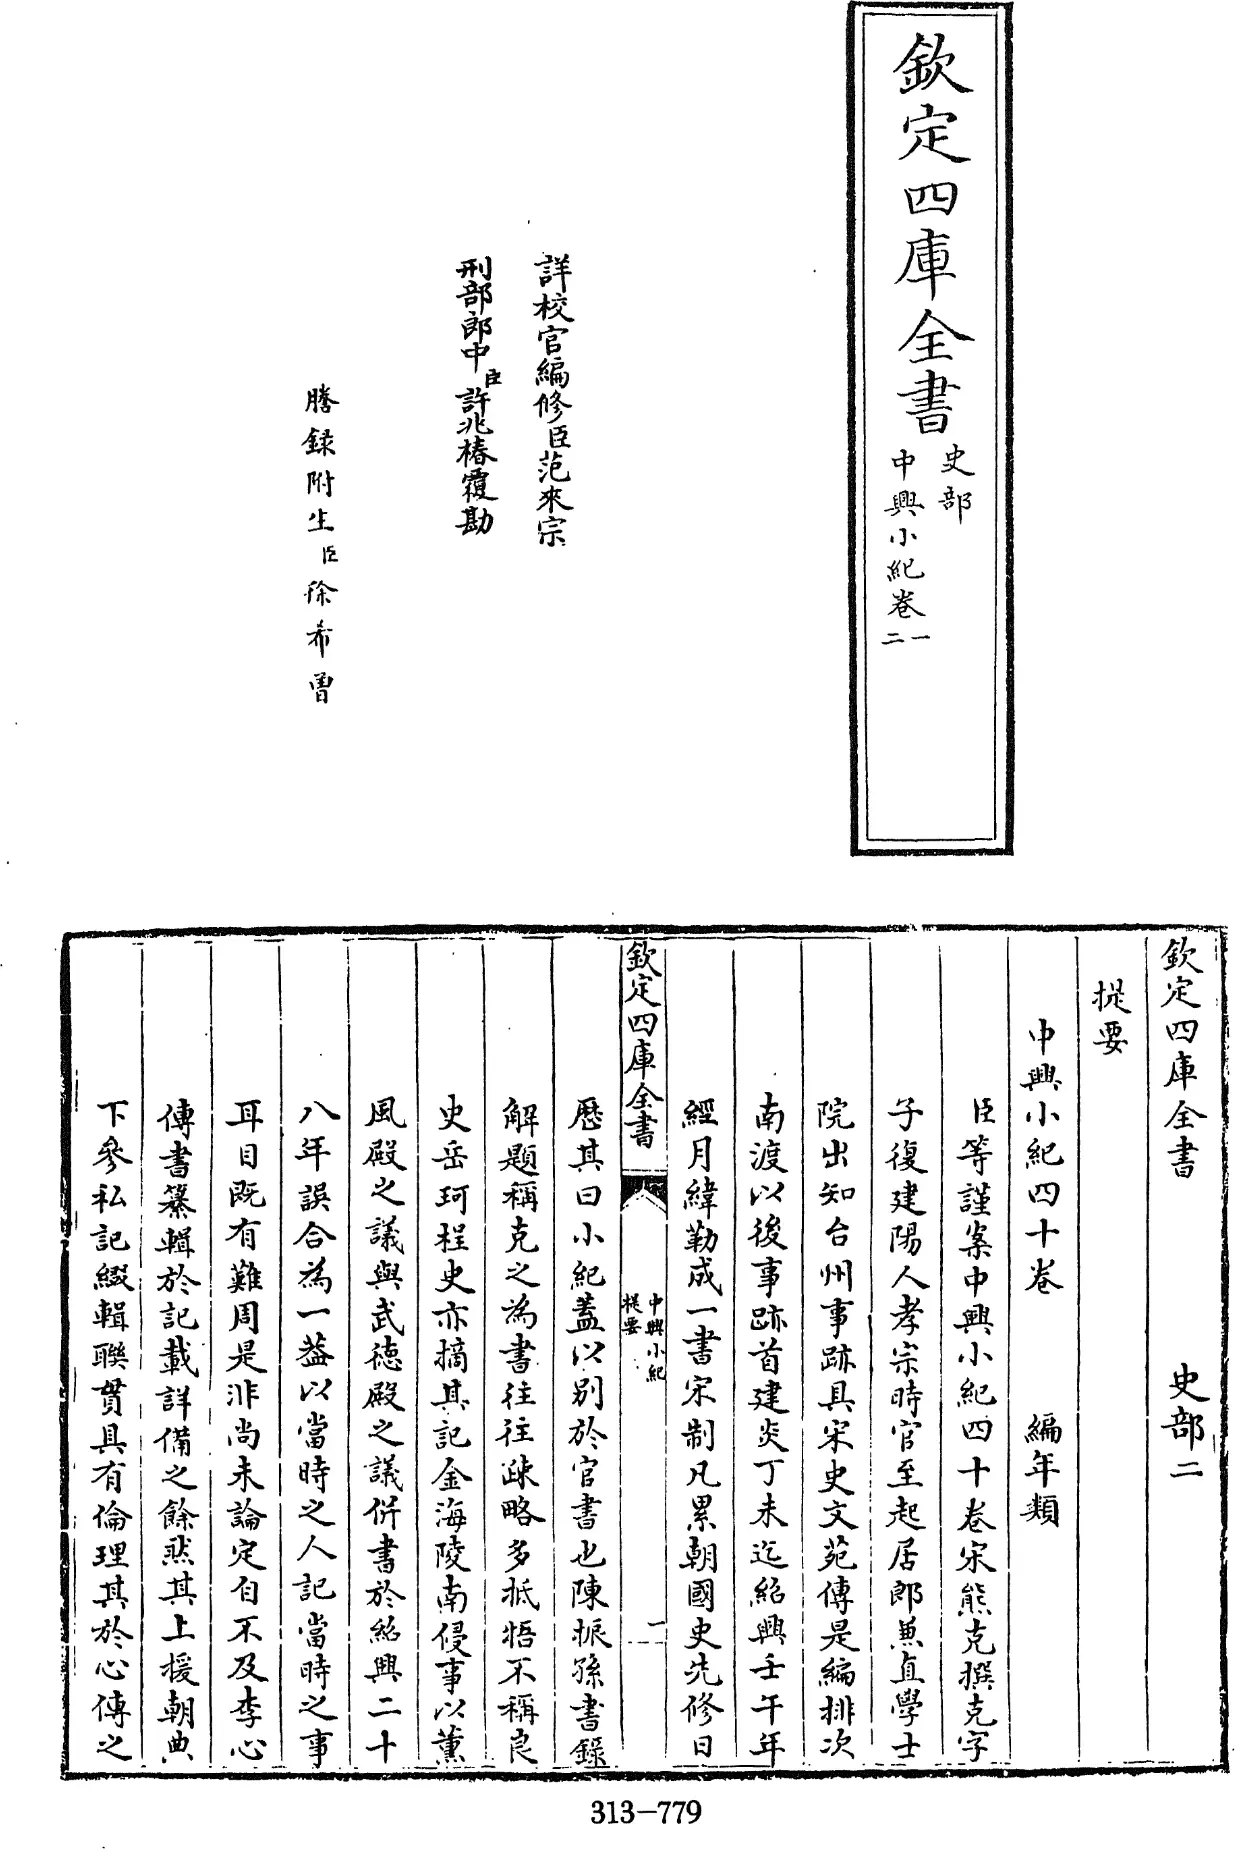 欽定四庫全書
史部
中興小紀卷一
二
詳校官編修臣范來宗
刑部郎中臣許兆椿覆勘
謄録附生臣徐希曾
欽定四庫全書 史部二
提要
中興小紀四十卷 編年類
臣等謹案中興小紀四十卷宋熊克撰克字
子復建陽人孝宗時官至起居郎兼直學士
院出知台州事跡具宋史文苑傳是編排次
南渡以後事跡首建炎丁未迄紹興壬午年
經月緯勒成一書宋制凡累朝國史先修日
欽定四庫全書
中興小紀
提要
一
歷其曰小紀蓋以别於官書也陳振孫書錄
解題稱克之為書往往疎略多抵牾不稱良
史岳珂桯史亦摘其記金海陵南侵事以薰
風殿之議與武德殿之議併書於紹興二十
八年誤合為一葢以當時之人記當時之事
耳目既有難周是非尚未論定自不及李心
傳書纂輯於記載詳備之餘然其上援朝典
下參私記綴輯聯貫具有倫理其於心傳之
313-779